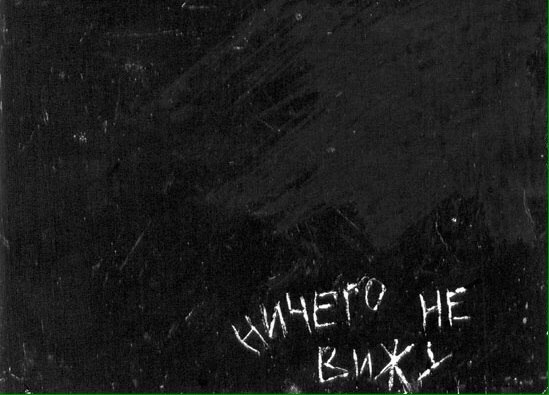 НИЧЕГО НЕ
ВИЖУ